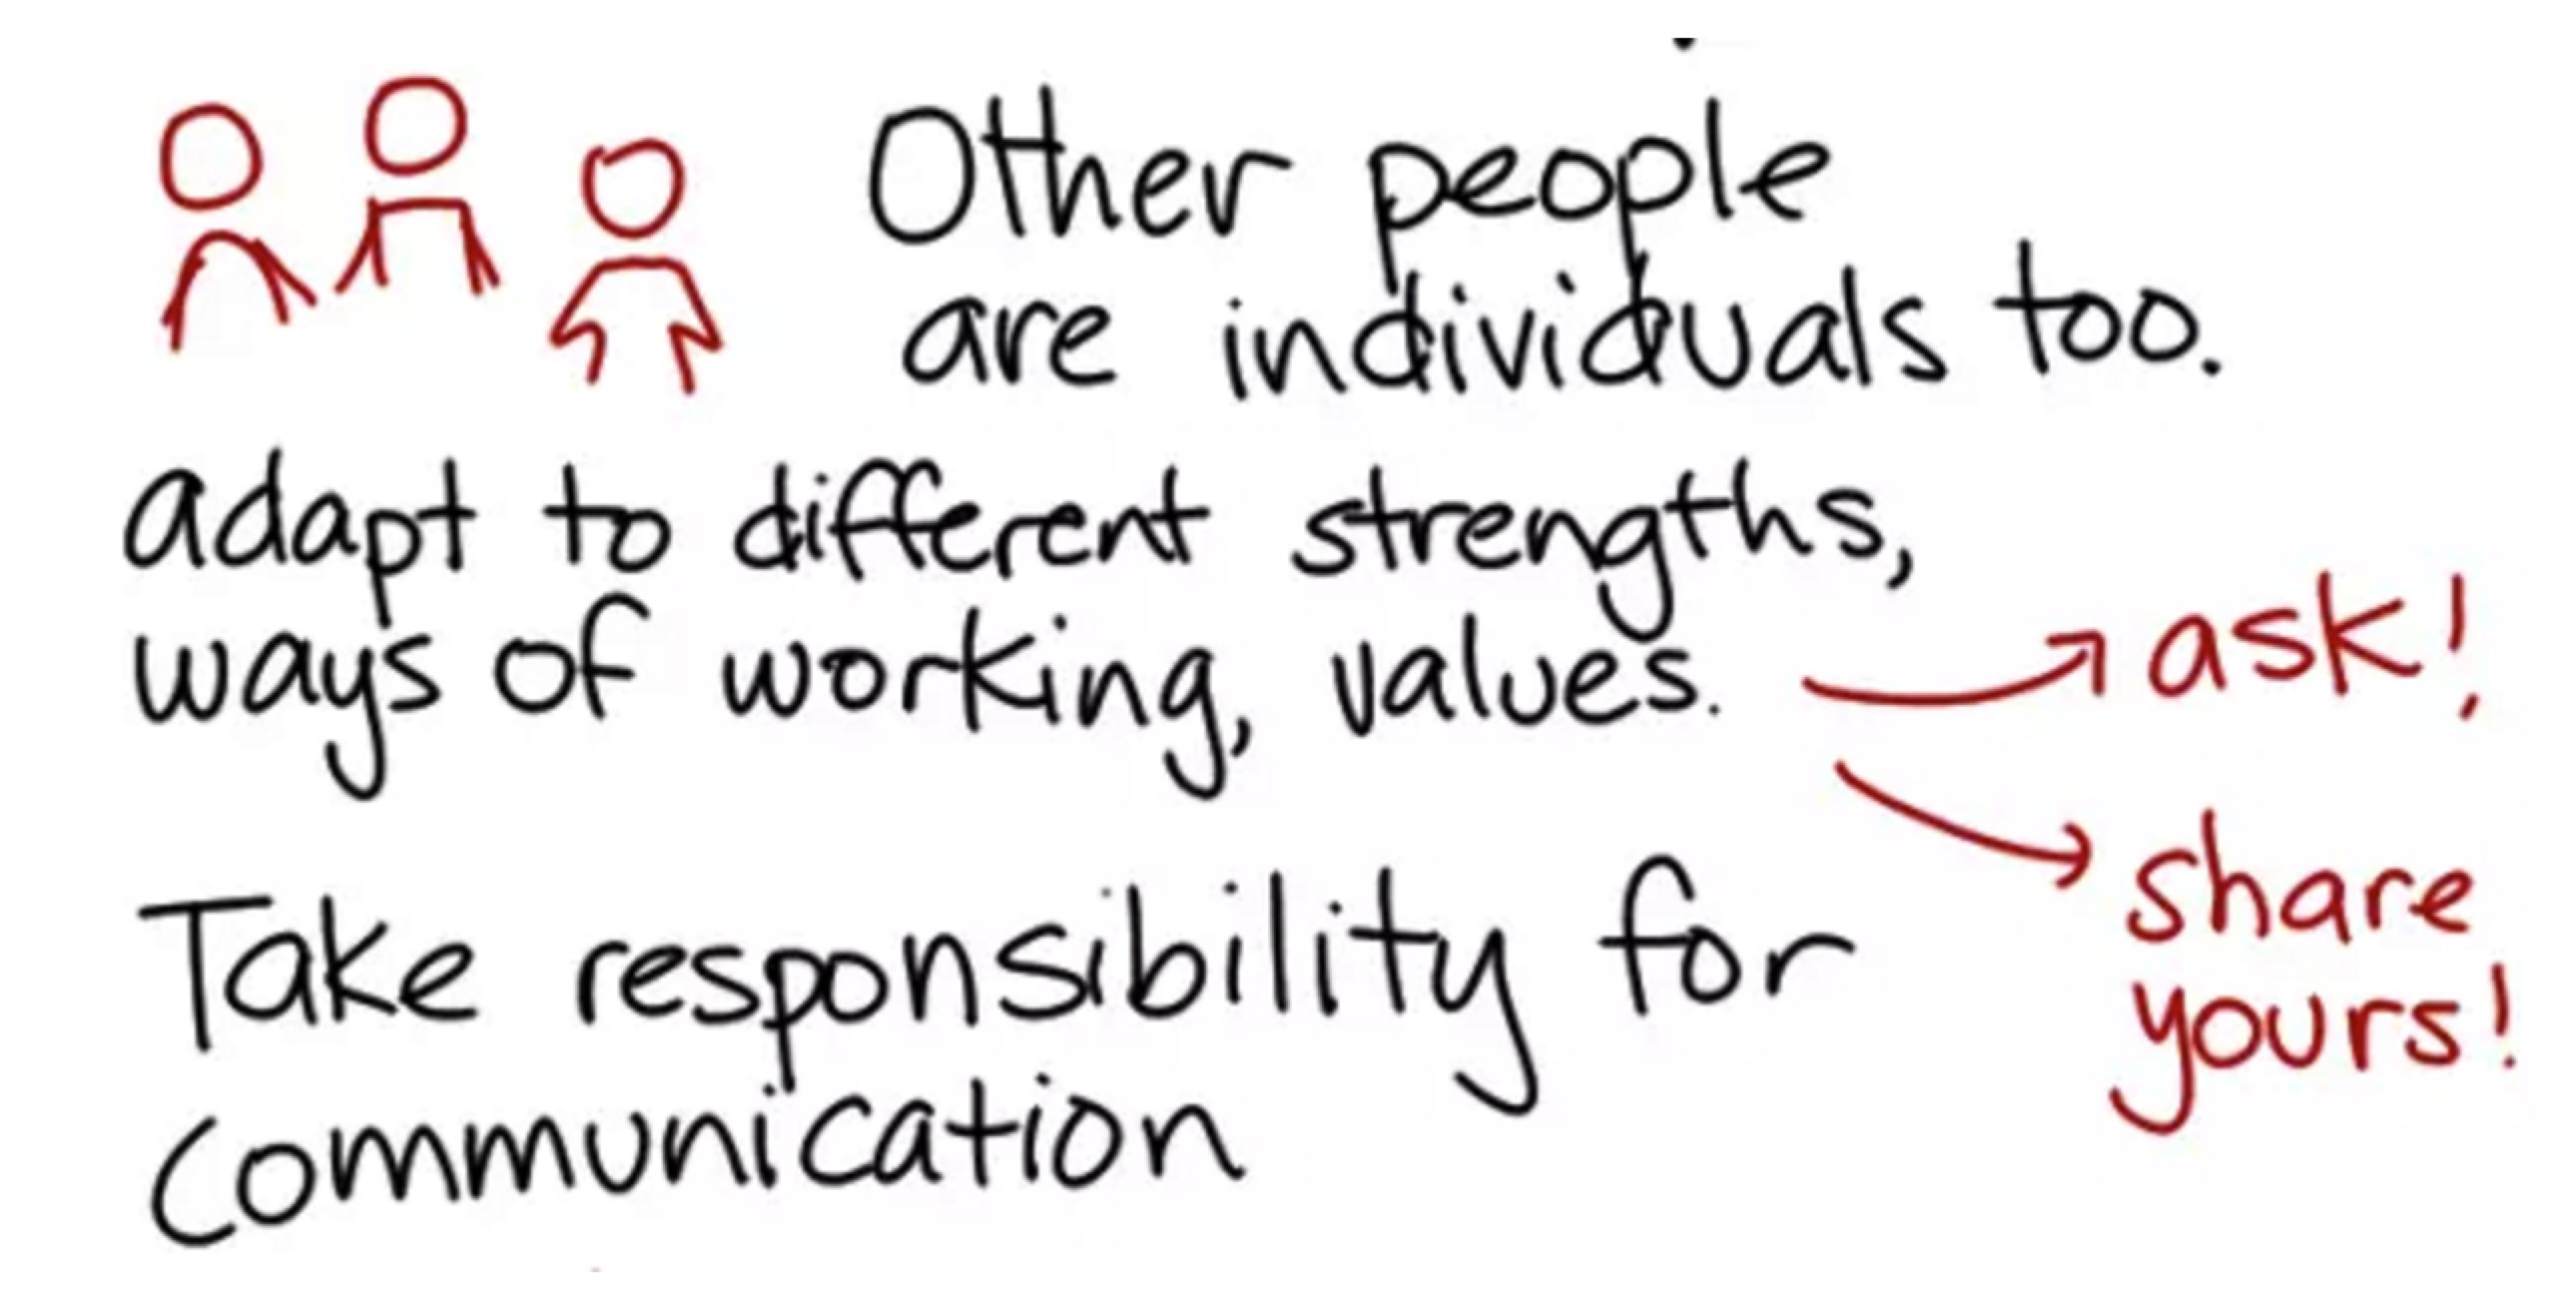 Other people
are individuals too.
adapt to different strengths,
ways of working, values.
ask!
share
yours!
Take responsibility for
communication